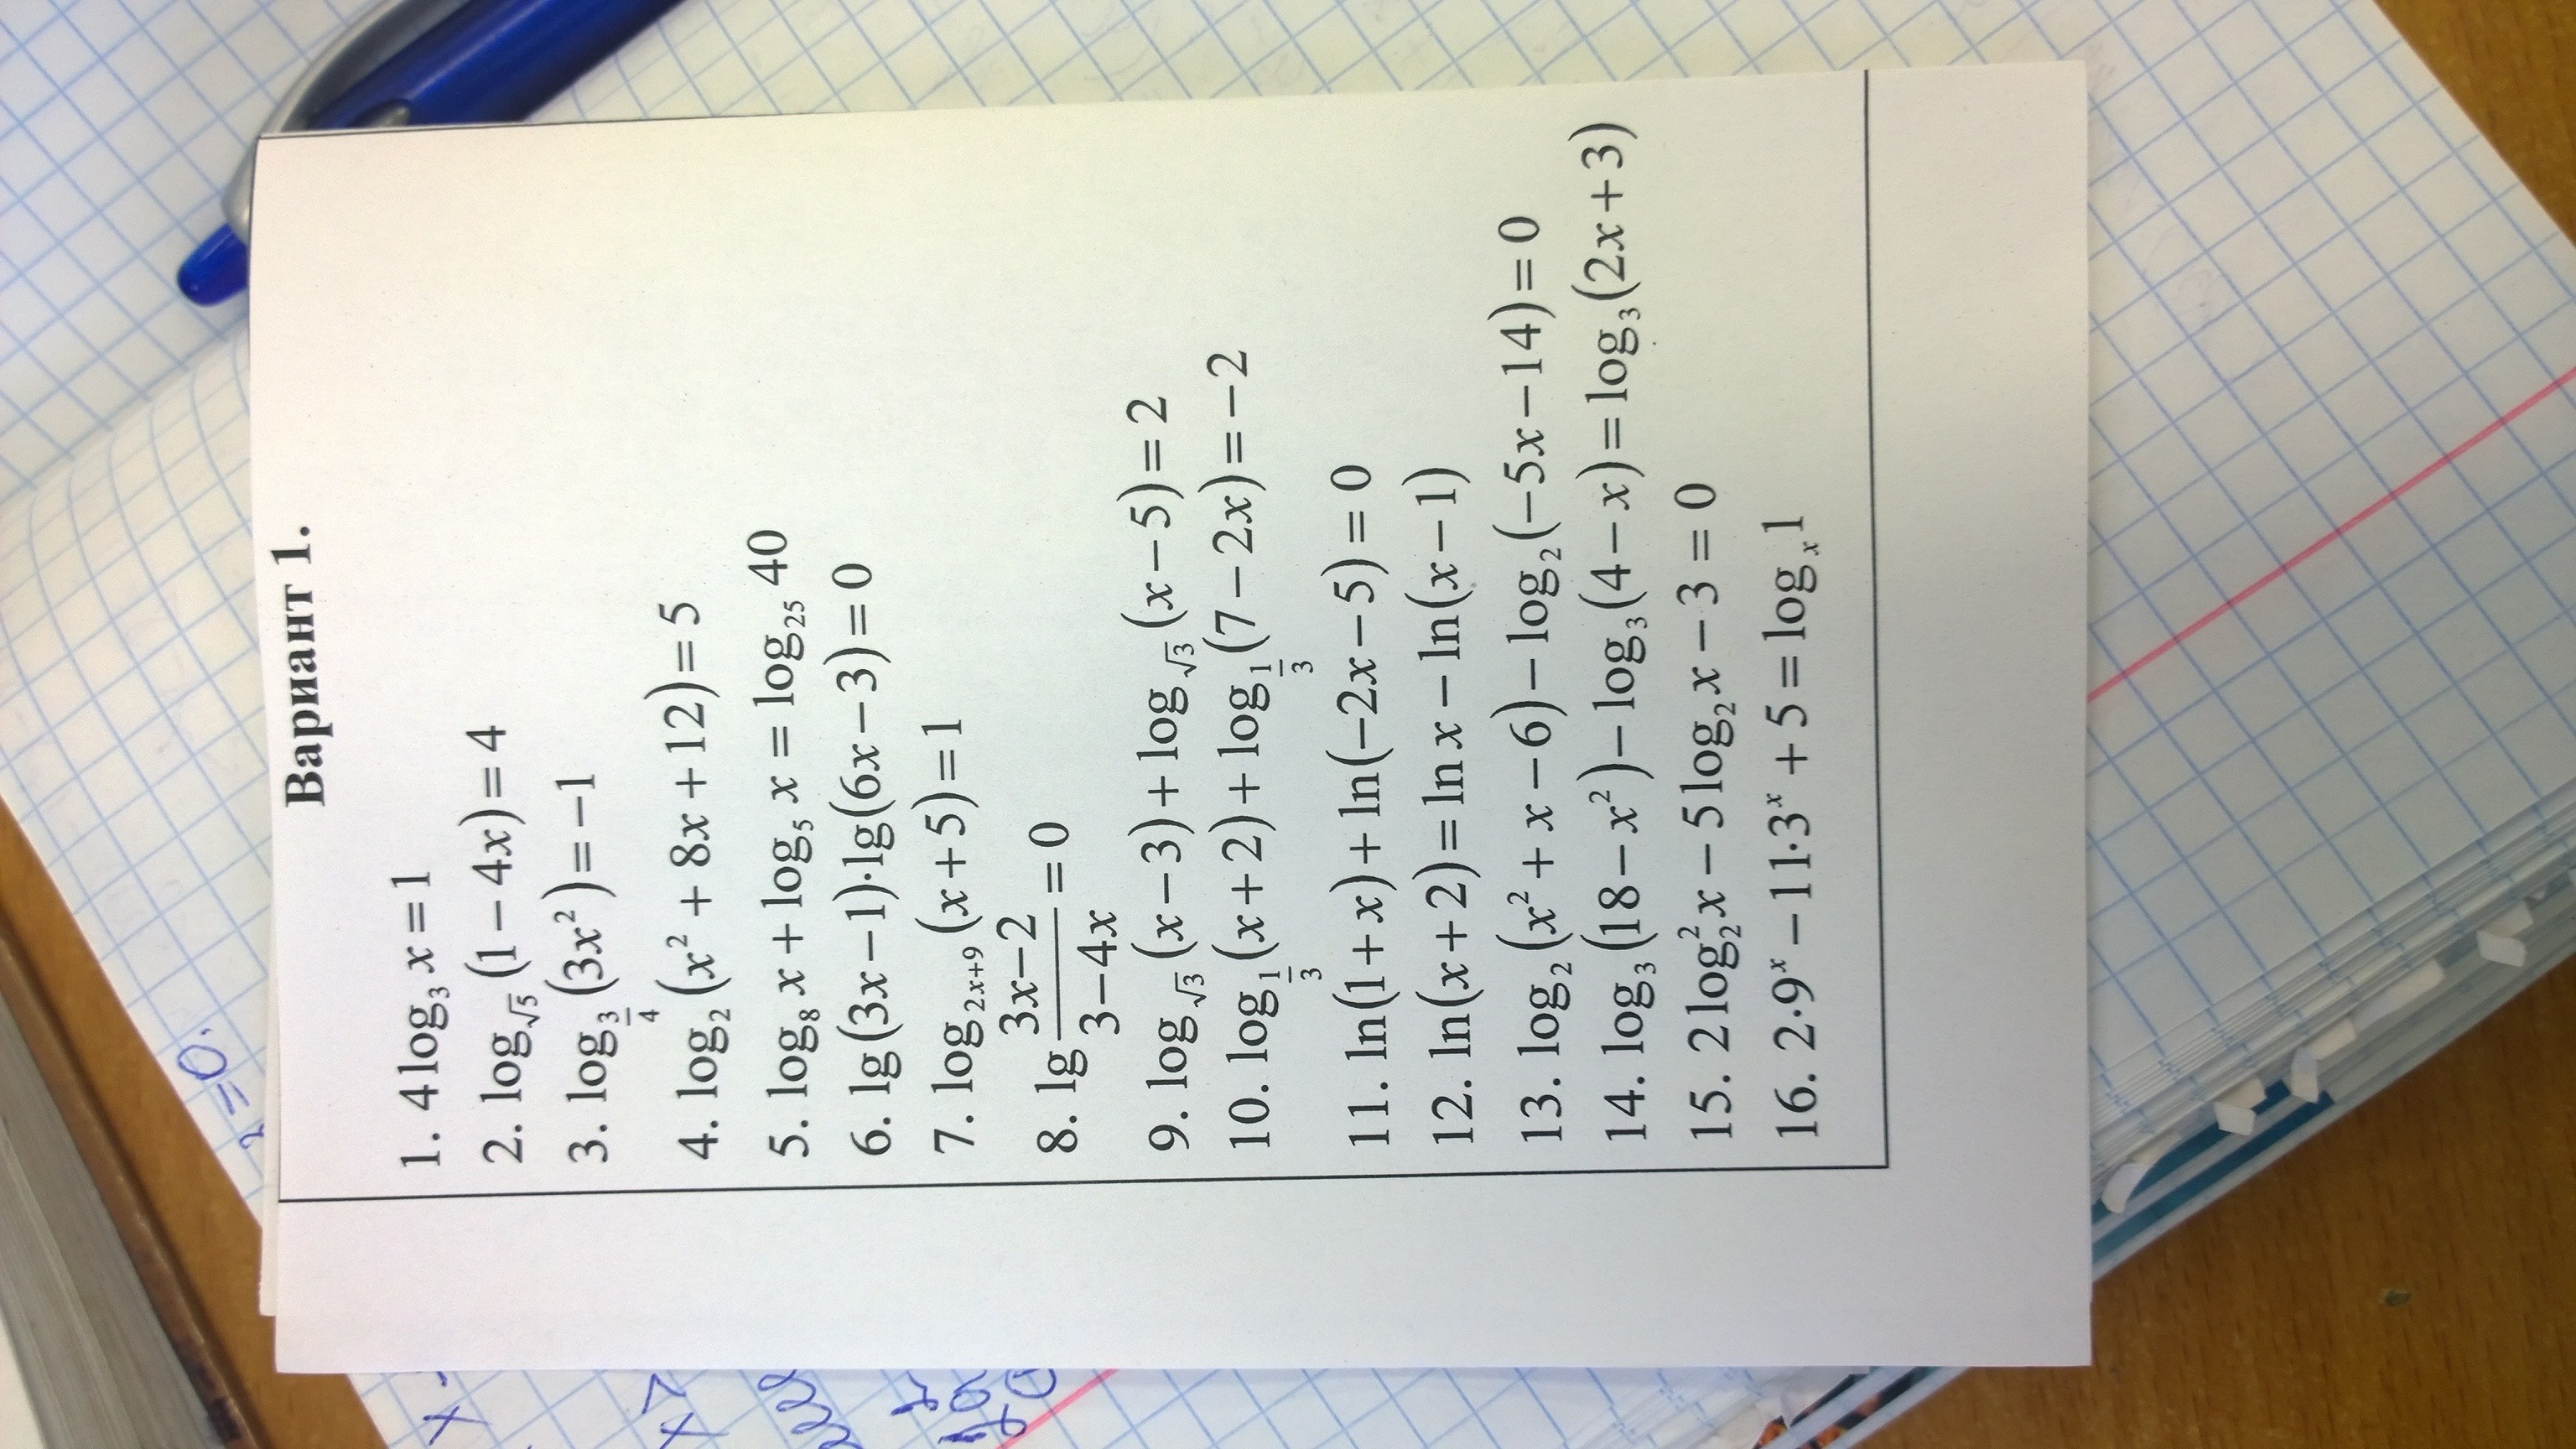 Вариант 1.
1. 4log₃ x = 1
2. log_√5 (1 − 4x) = 4
3. log_3/4 (3x²) = −1
4. log₂ (x² + 8x + 12) = 5
5. log₈ x + log₅ x = log₂₅ 40
6. lg(3x − 1)·lg(6x − 3) = 0
7. log_2x+9 (x + 5) = 1
8. lg (3x−2)/(3−4x) = 0
9. log_√3 (x − 3) + log_√3 (x − 5) = 2
10. log_1/3 (x + 2) + log_1/3 (7 − 2x) = −2
11. ln(1 + x) + ln(−2x − 5) = 0
12. ln(x + 2) = ln x − ln(x − 1)
13. log₂ (x² + x − 6) − log₂ (−5x − 14) = 0
14. log₃ (18 − x²) − log₃ (4 − x) = log₃ (2x + 3)
15. 2log₂² x − 5log₂ x − 3 = 0
16. 2·9ˣ − 11·3ˣ + 5 = logₓ 1
=0.